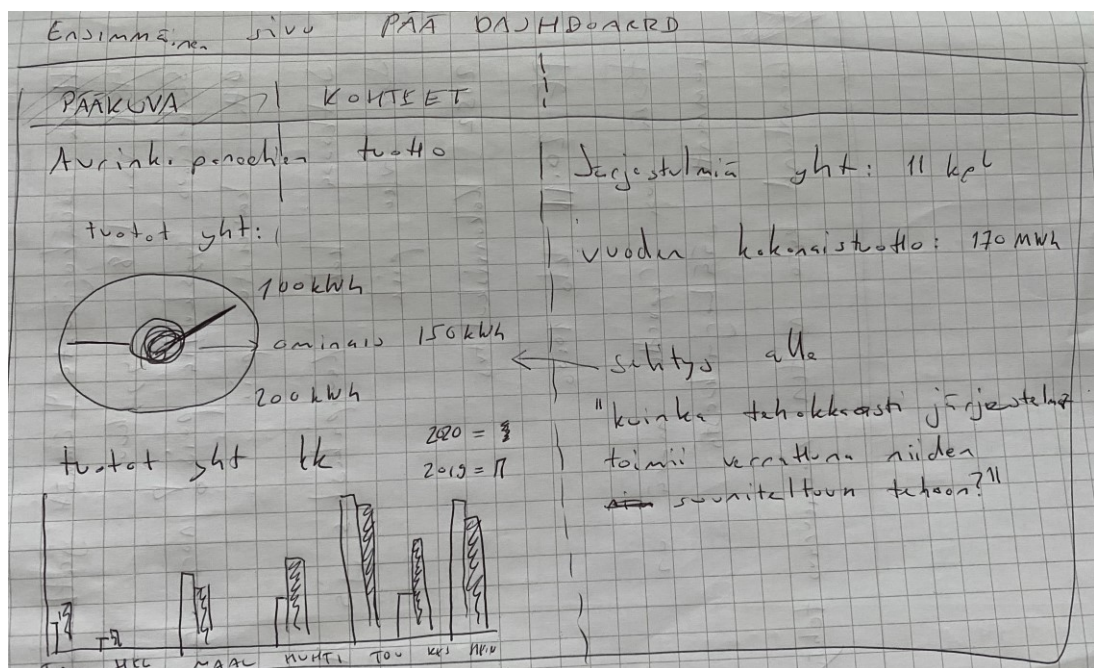 Ensimmäinen sivu PÄÄ DASHBOARD
PÄÄKUVA KOHTEET
Aurink. paneelien tuotto
tuotot yht:
100 kWh
ominais 150 kWh
200 kWh
tuotot yht kk
2020 =
2019 =
HEL MAAL HUHTI TOU KES HEIN
Järjestelmiä yht: 11 kpl
vuoden kokonaistuotto: 170 MWh
selitys alle
"kuinka tehokkaasti järjestelmät
toimii verrattuna niiden
suuniteltuun tehoon?"